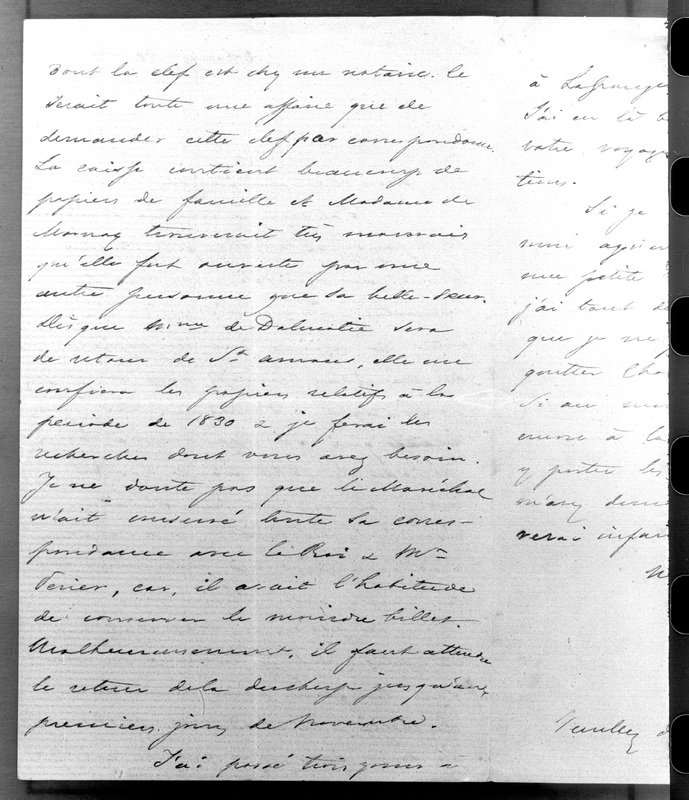 dont la clef est chez un notaire. Ce
serait toute une affaire que de
demander cette clef par correspondance.
La caisse contient beaucoup de
papiers de famille et Madame de
Mornay trouverait très mauvais
qu'elle fut ouverte par une
autre personne que sa belle-sœur.
Dès que Mme de Dalmatie sera
de retour de St Amans, elle me
confiera les papiers relatifs à la
période de 1830 & je ferai les
recherches dont vous avez besoin.
Je ne doute pas que le Maréchal
n'ait conservé toute sa corres-
pondance avec le Roi & Mr
Perier, car, il avait l'habitude
de conserver le moindre billet.
Malheureusement, il faut attendre
le retour de la duchesse jusqu'aux
premiers jours de Novembre.
J'ai passé trois jours
à Lagrange
J'ai eu là
votre voyage
tiens.
Si je
une petite
j'ai tout
que je ne
goutter
Si au
encore à la
y porter les
m'avez
verai
Veuillez